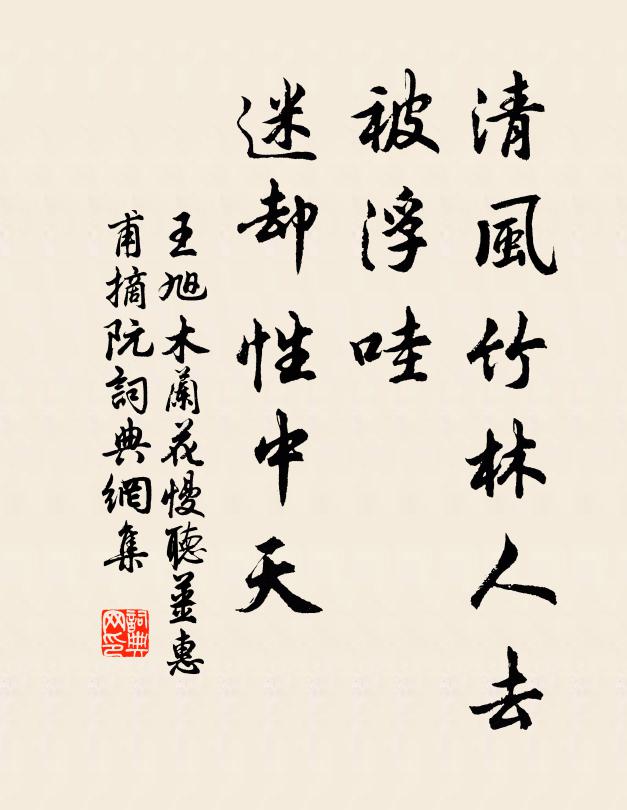 清風竹林人去
被浮哇
迷却性中天
王旭木蘭花慢聽姜惠
甫摘阮詞典網集
詞典网印